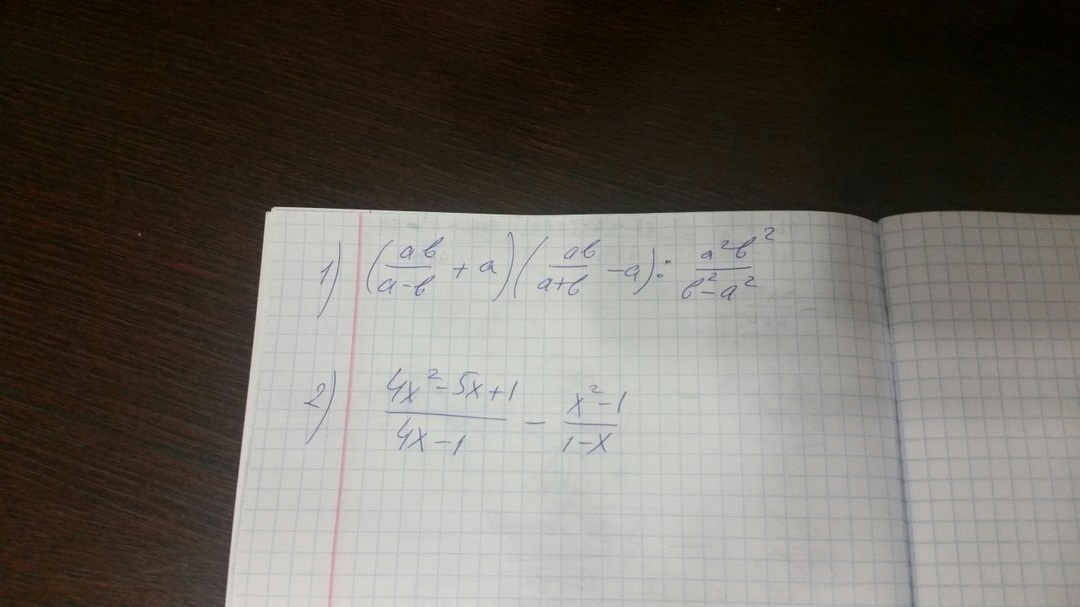 1) (ab/(a-b) + a)(ab/(a+b) - a) : a²b²/(b²-a²)
2) (4x²-5x+1)/(4x-1) - (x²-1)/(1-x)